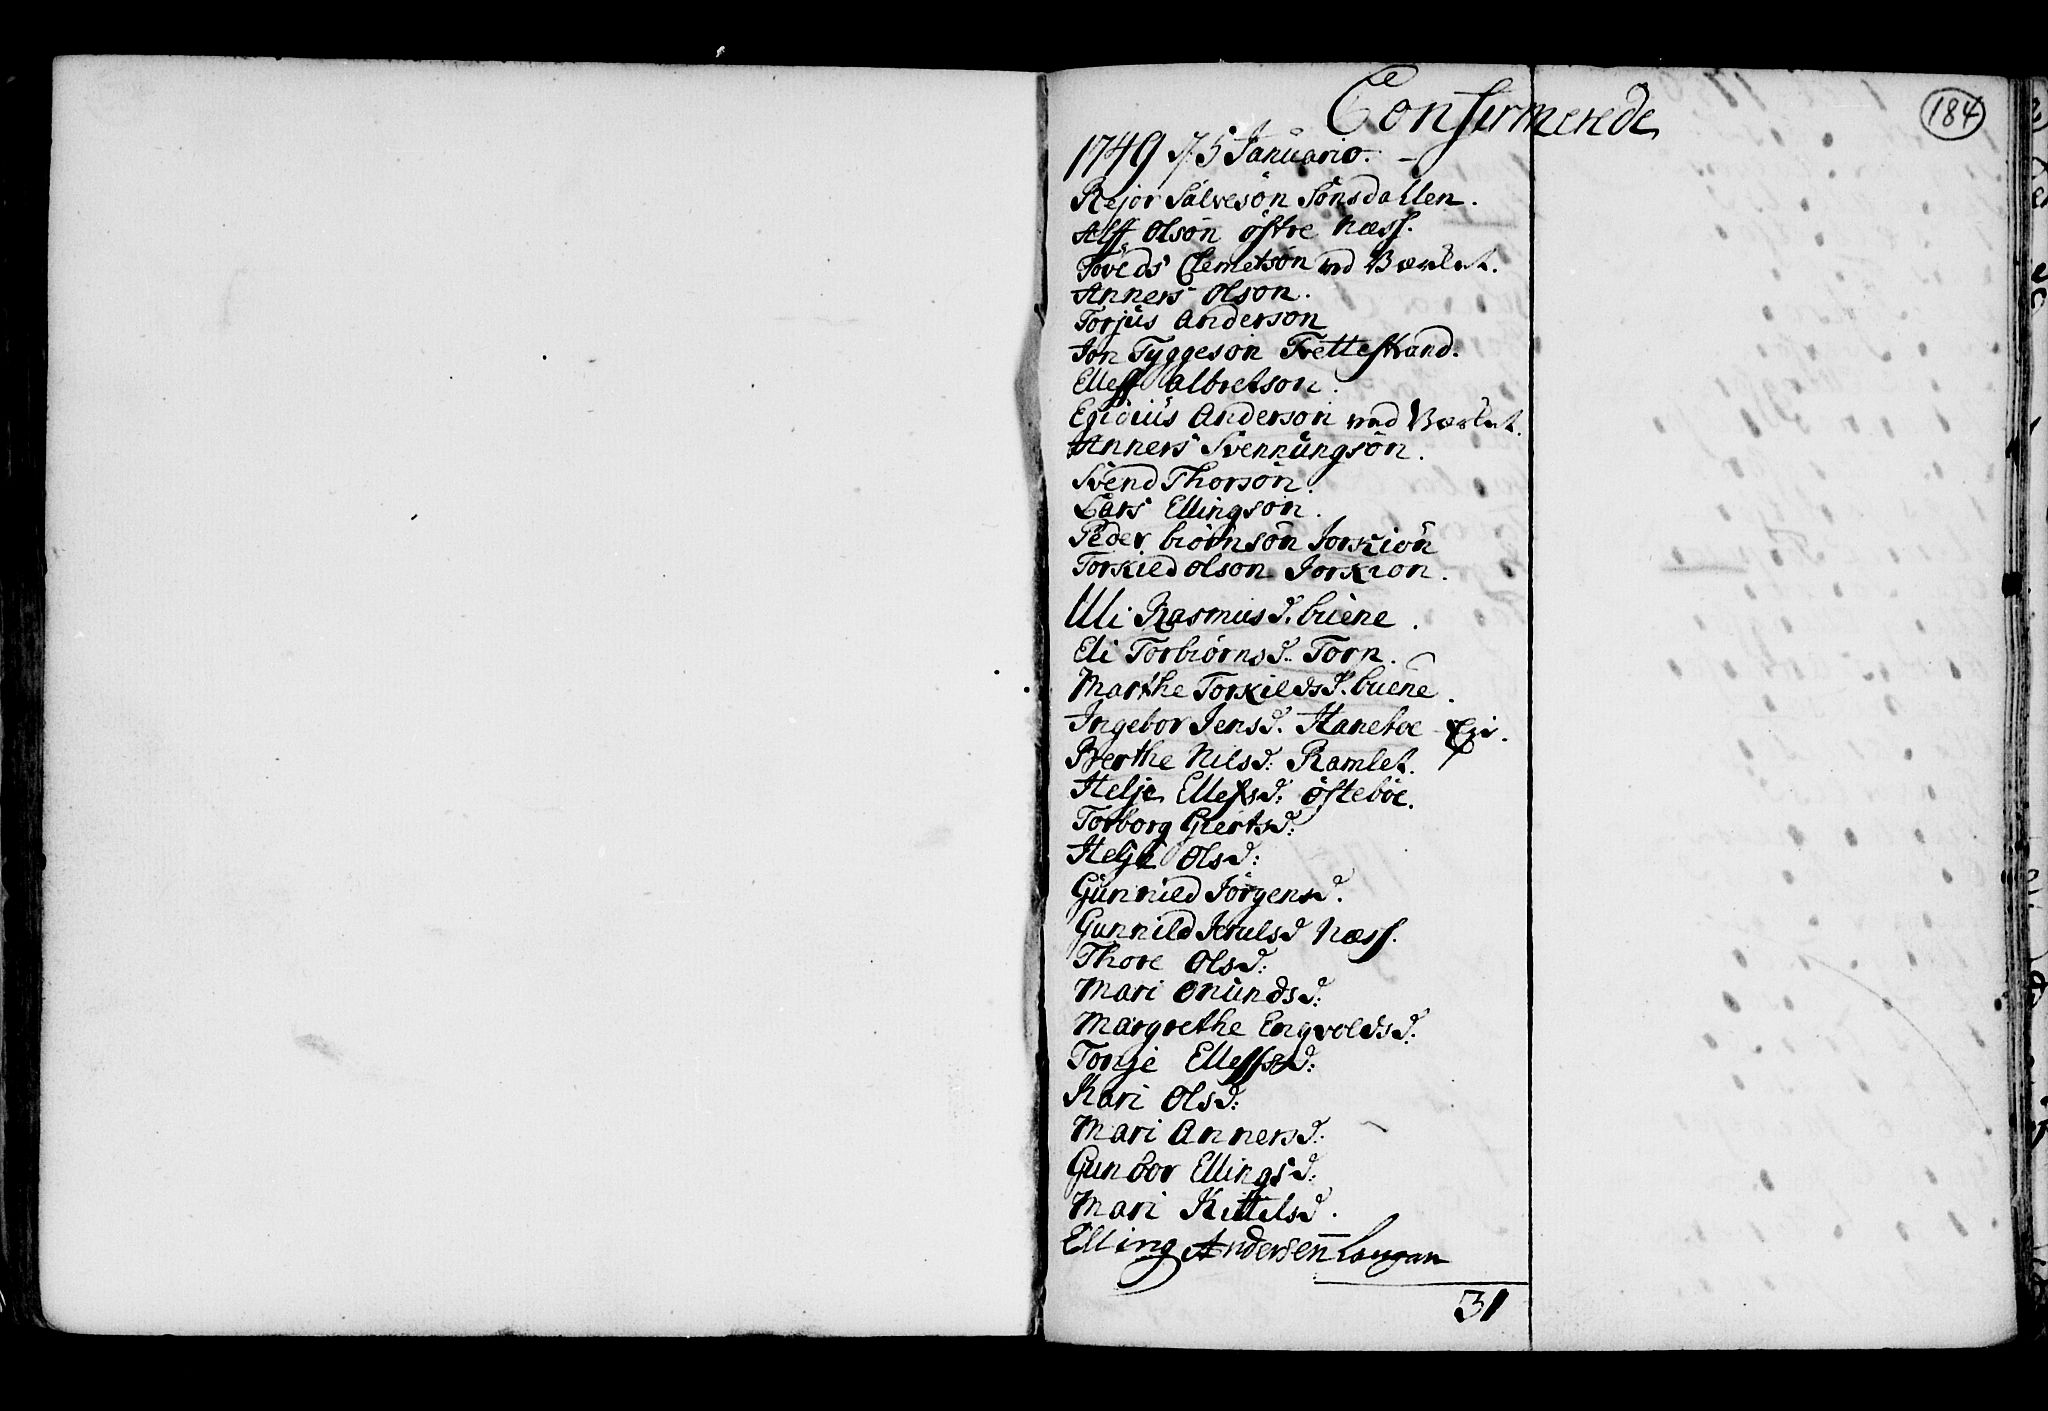 184
Confirmerede
1749 5 Januario.
Rejor Salvesøn Sønsdallen.
Alff Olsøn østre Næss.
Toveds Clemetsøn ved Værket.
Anners Olson.
Torjus Anderson
Jon Tyggesøn Tvettestrand.
Elleff Albretson.
Egidius Anderson ved Værket.
Anners Svennungsøn.
Svend Thorsøn.
Lars Ellingsøn.
Peder biørnsøn Jorkiøn
Torkield olson Jorkion.
Uli Rasmusd. buene.
Eli Torbiørnsd. Torn.
Marthe Torkildsd. buene.
Ingebor Jensd. Haneboe
Berthe Nilsd: Ramlet.
Helje Ellefsd: østebøe.
Torborg Giertsd:
Helje Olsd:
Gunnild Jørgensd.
Gunnild Jerulsd Næss.
Thore Olsd:
Mari Onundsd:
Margrethe Engvoldsd:
Tonje Elleffsd:
Kari Olsd:
Mari Annersd:
Gunbor Ellingsd:
Mari Kittelsd.
Elling Andersen Langan
31